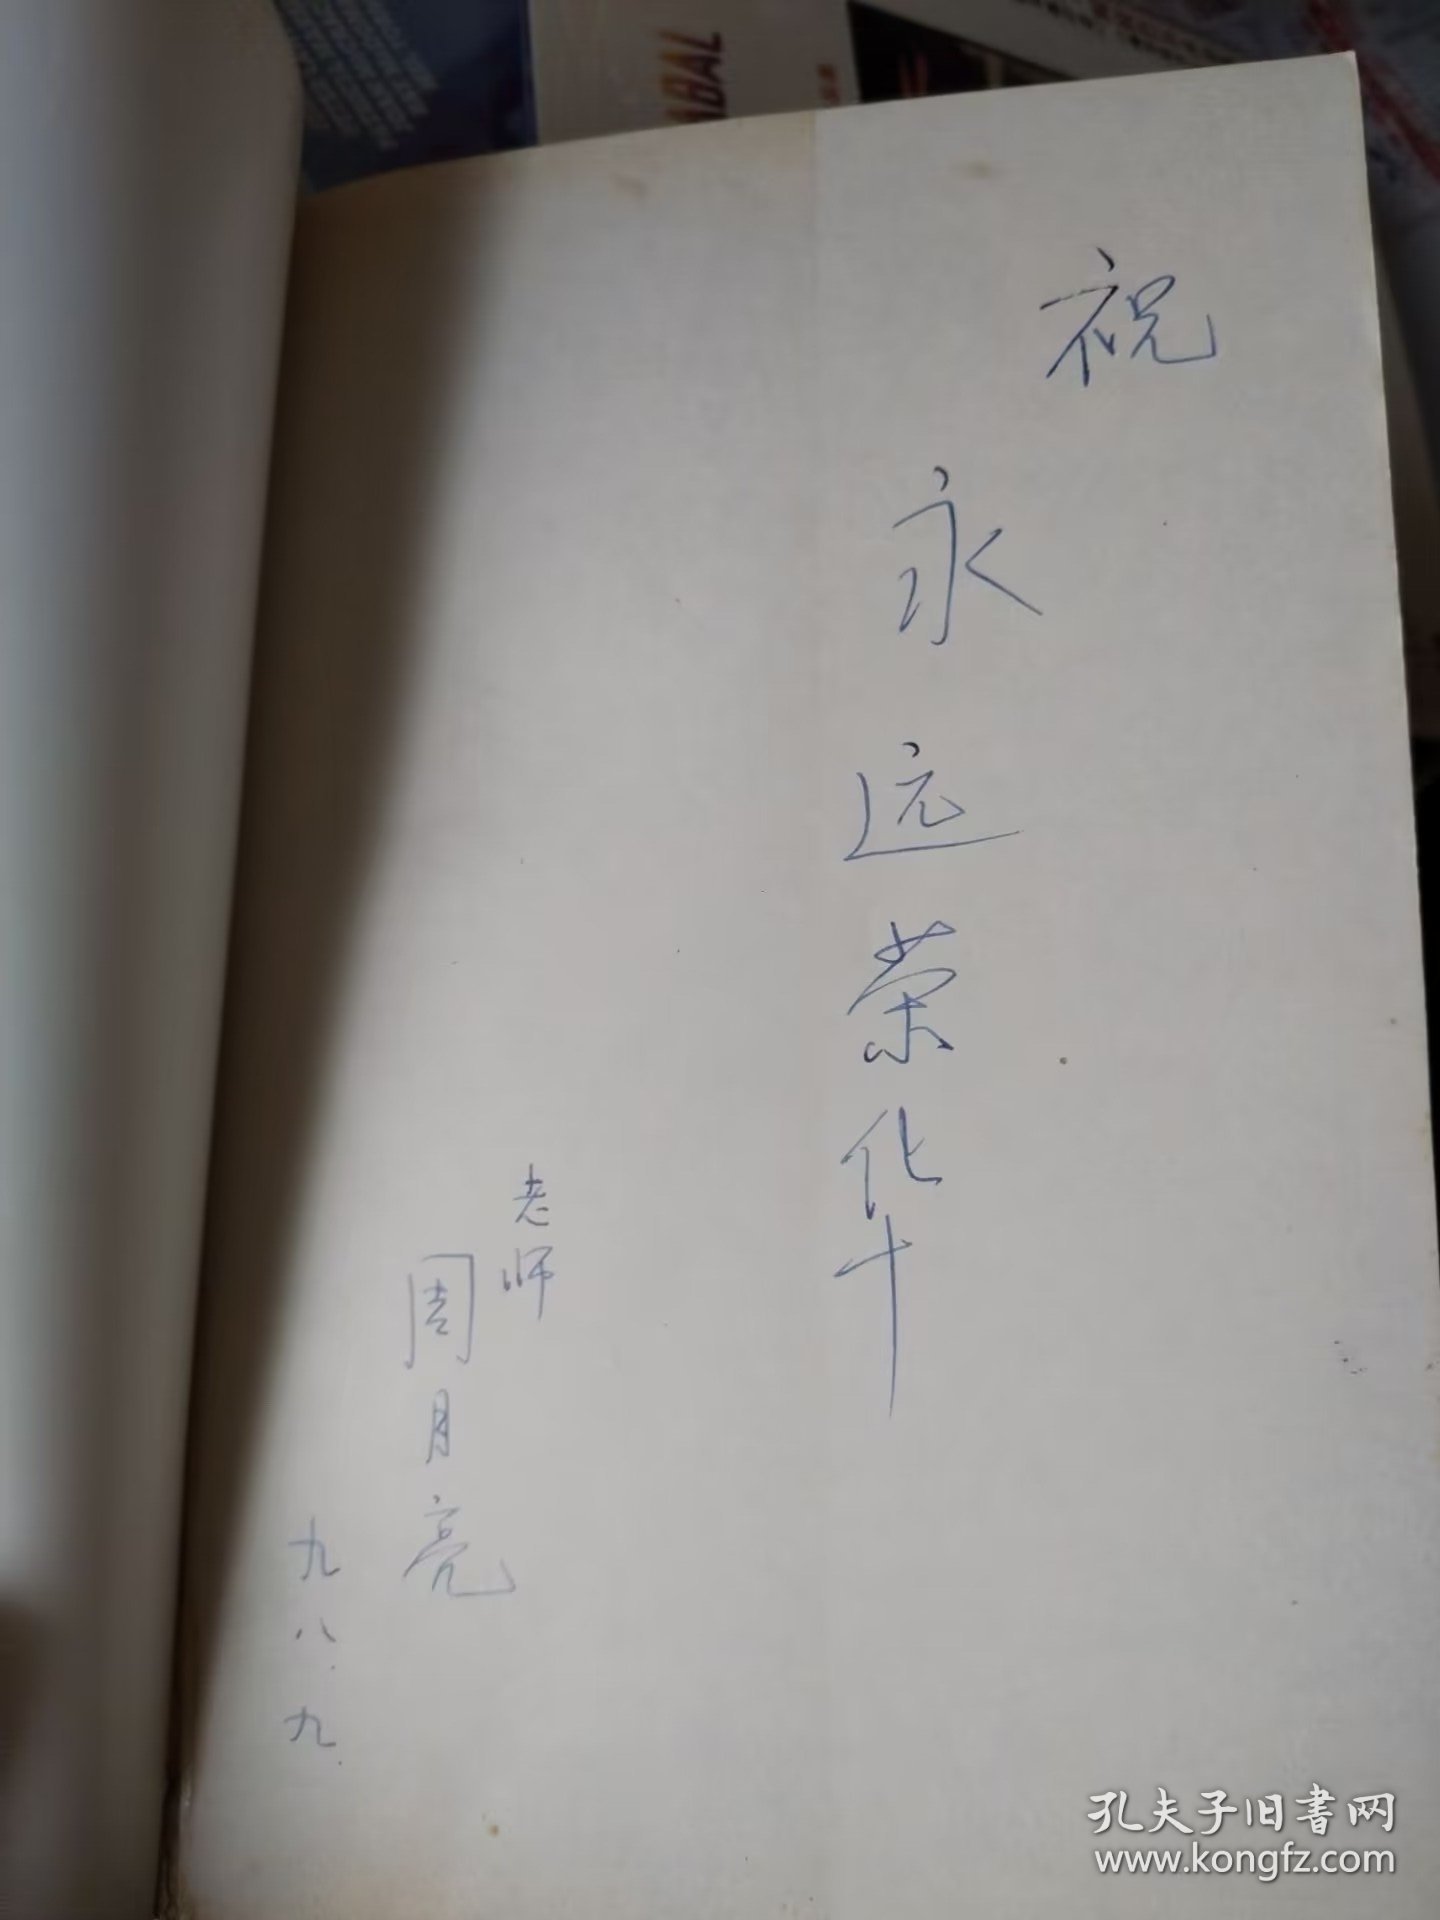 祝
永远荣华
老师
周月亮
九八.九.
孔夫子旧书网
www.kongfz.com